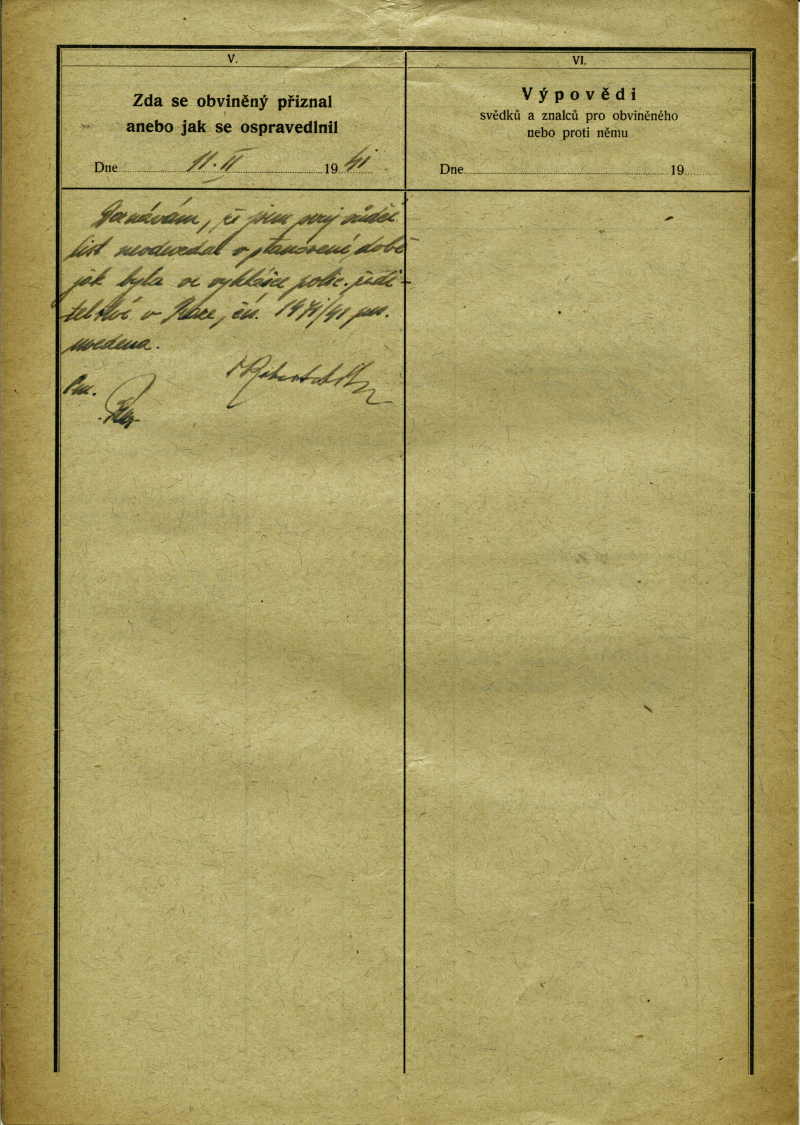 V.
Zda se obviněný přiznal
anebo jak se ospravedlnil
Dne 11. II 1941
Doznávám, že jsem svůj řidič.
list neodevzdal v stanovené době
jak byla ve vyhlášce polic. ředi-
telství v Praze, čís. /41
uvedena.
VI.
Výpovědi
svědků a znalců pro obviněného
nebo proti němu
Dne 19